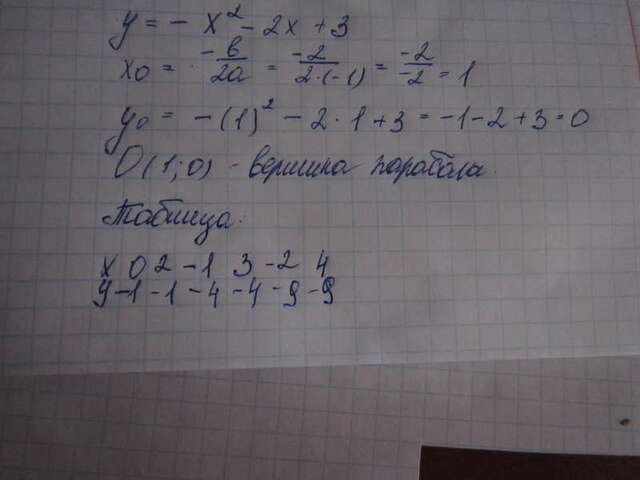 y = - x² - 2x + 3
x₀ = -в/2а = -2/2·(-1) = -2/-2 = 1
y₀ = -(1)² - 2·1 + 3 = -1 - 2 + 3 = 0
O(1;0) - вершина парабола.
Таблица:
x 0 2 -1 3 -2 4
y -1 -1 -4 -4 -9 -9